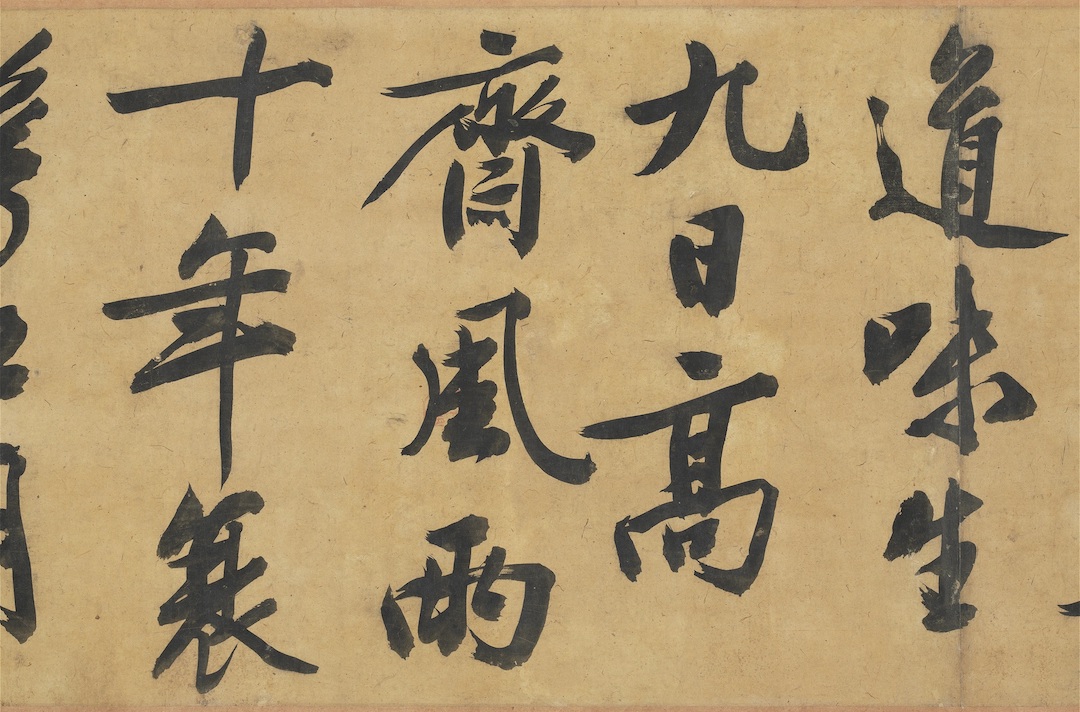 道味生
九日高
齋風雨
十年簑